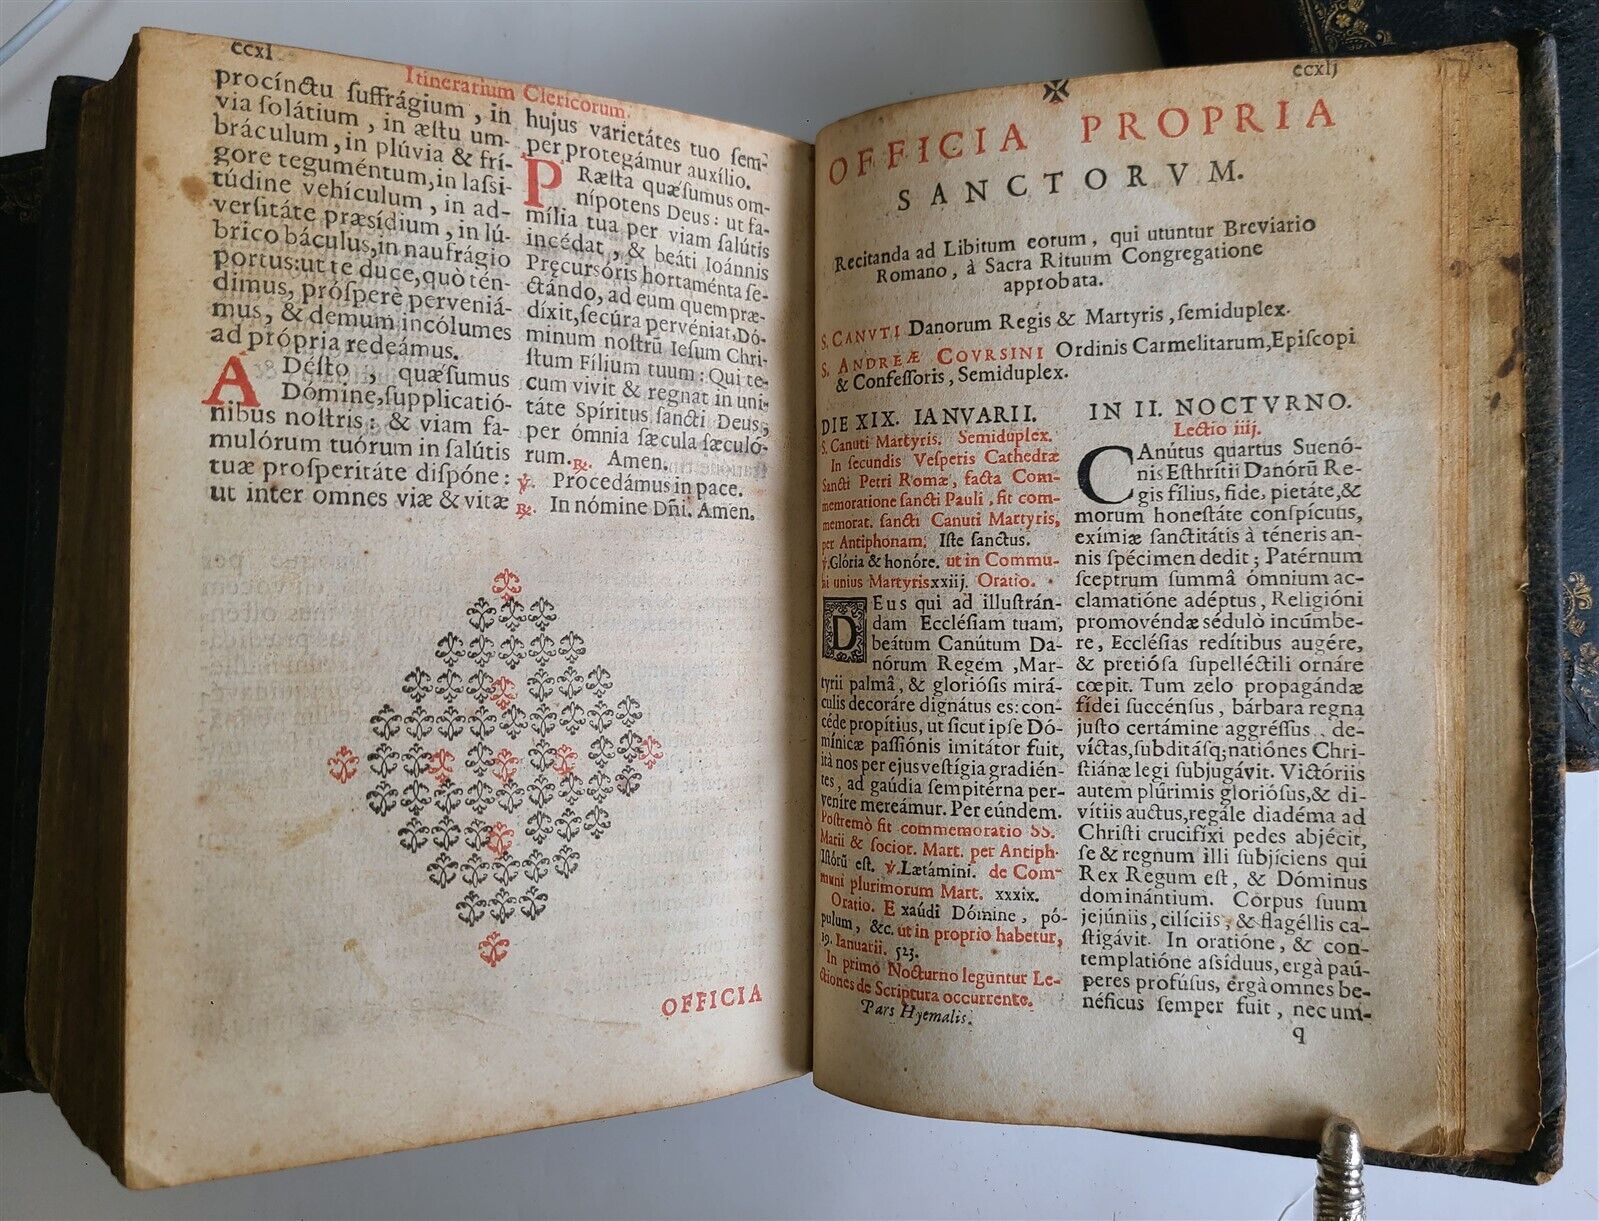 ccxl
Itinerarium Clericorum.
procínctu ſuffrágium, in
via ſolátium, in æſtu um-
bráculum, in plúvia & frí-
gore teguméntum, in laſsi-
túdine vehículum, in ad-
verſitáte præsídium, in lú-
brico báculus, in naufrágio
portus: ut te duce, quò tén-
dimus, próſperè perveniá-
mus, & demum incólumes
ad própria redeámus.
ADéſto, quǽſumus
Dómine, ſupplicatió-
nibus noſtris: & viam fa-
mulórum tuórum in ſalútis
tuæ proſperitáte diſpóne:
ut inter omnes viæ & vitæ
hujus varietátes tuo ſem-
per protegámur auxílio.
PRæſta quæſumus om-
nípotens Deus: ut fa-
mília tua per viam ſalútis
incédat, & beáti Ioánnis
Pręcursóris hortaménta ſe-
ctándo, ad eum quem præ-
díxit, ſecúra pervéniat, Dó-
minum noſtrũ Ieſum Chri-
ſtum Fílium tuum: Qui te-
cum vivit & regnat in uni-
táte Spíritus ſancti Deus,
per ómnia ſæcula ſæculó-
rum. ℟. Amen.
℣. Procedámus in pace.
℟. In nómine Dñi. Amen.
OFFICIA
ccxlj
✠
OFFICIA PROPRIA
SANCTORVM.
Recitanda ad Libitum eorum, qui utuntur Breviario
Romano, à Sacra Rituum Congregatione
approbata.
S. CANVTI Danorum Regis & Martyris, ſemiduplex.
S. ANDREÆ COVRSINI Ordinis Carmelitarum, Epiſcopi
& Confeſſoris, Semiduplex.
DIE XIX. IANVARII.
S. Canuti Martyris. Semiduplex.
In ſecundis Veſperis Cathedræ
Sancti Petri Romæ, facta Com-
memoratione ſancti Pauli, fit com-
memorat. ſancti Canuti Martyris,
per Antiphonam. Iſte ſanctus.
℣. Glória & honóre. ut in Commu-
ni unius Martyris xxiij. Oratio.
DEus qui ad illuſtrán-
dam Eccléſiam tuam,
beátum Canútum Da-
nórum Regem, Mar-
tyrii palmâ, & glorióſis mirá-
culis decoráre dignátus es: con-
céde propítius, ut ſicut ipſe Dó-
mínicæ paſſiónis imitátor fuit,
ità nos per ejus veſtígia gradién-
tes, ad gaúdia ſempitérna per-
veníre mereámur. Per eúndem.
Poſtremò fit commemoratio SS.
Marii & ſocior. Mart. per Antiph.
Iſtórũ eſt. ℣. Lætámini. de Com-
muni plurimorum Mart. xxxix.
Oratio. Exaúdi Dómine, pó-
pulum, &c. ut in proprio habetur,
19. Ianuarii. 523.
In primo Nocturno leguntur Le-
ctiones de Scriptura occurrente.
Pars Hyemalis.
IN II. NOCTVRNO.
Lectio iiij.
CAnútus quartus Suenó-
nis Eſthrítii Danórũ Re-
gis fílius, fide, pietáte, &
morum honeſtáte conſpícuus,
exímiæ ſanctitátis à téneris an-
nis ſpécimen dedit; Patérnum
ſceptrum ſummâ ómnium ac-
clamatióne adéptus, Religióni
promovéndæ sédulò incúmbe-
re, Eccléſias redítibus augére,
& pretióſa ſupelléctili ornáre
cœpit. Tum zelo propagándæ
fídei ſuccénſus, bárbara regna
juſto certámine aggréſſus, de-
víctas, ſubditáſq; natiónes Chri-
ſtiánæ legi ſubjugávit. Victóriis
autem plúrimis glorióſus, & di-
vítiis auctus, regále diadéma ad
Chriſti crucifíxi pedes abjécit,
ſe & regnum illi ſubjíciens qui
Rex Regum eſt, & Dóminus
dominántium. Córpus ſuum
jejúniis, cilíciis, & flagéllis ca-
ſtigávit. In oratióne, & con-
templatióne aſsíduus, ergà paú-
peres profúſus, ergà omnes be-
néficus ſemper fuit, nec um-
q